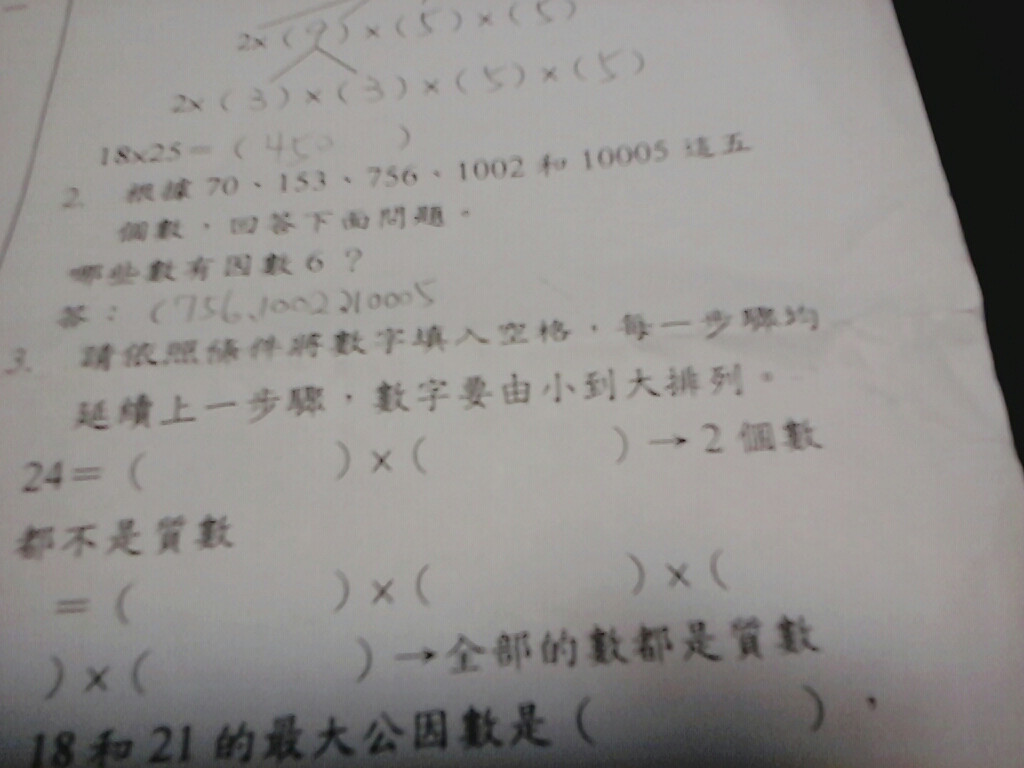 2×(9)×(5)×(5)
2×(3)×(3)×(5)×(5)
18×25=(450)
2. 根據 70、153、756、1002 和 10005 這五
個數,回答下面問題。
哪些數有因數 6 ?
答:(756、1002、10005
3. 請依照條件將數字填入空格,每一步驟均
延續上一步驟,數字要由小到大排列。
24=( )×( )→2 個數
都不是質數
=( )×( )×(
)×( )→全部的數都是質數
18 和 21 的最大公因數是( ),